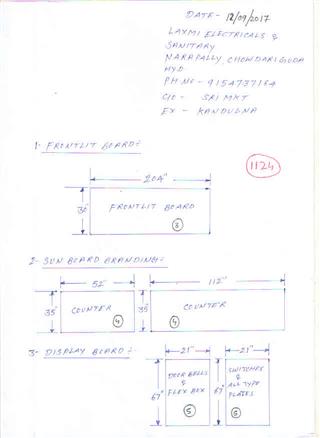 DATE- 12/09/2017
LAXMI ELECTRICALS &
SANITARY
NARAPALLY CHOWDARIGUDA
HYD
PH NO - 9154737154
C/O - SRI MKT
EX - KANDUGNA
1- FRONTLIT BOARD:-
1124
204"
36"
FRONTLIT BOARD
3
2- SUN BOARD BRANDING:-
52" 112"
35" COUNTER 4 35" COUNTER 4
3- DISPLAY BOARD:-
21" 21"
DOOR BELLS
&
FLEX BOX
67"
5
SWITCHES
&
ALL TYPE
PLATES
67"
6